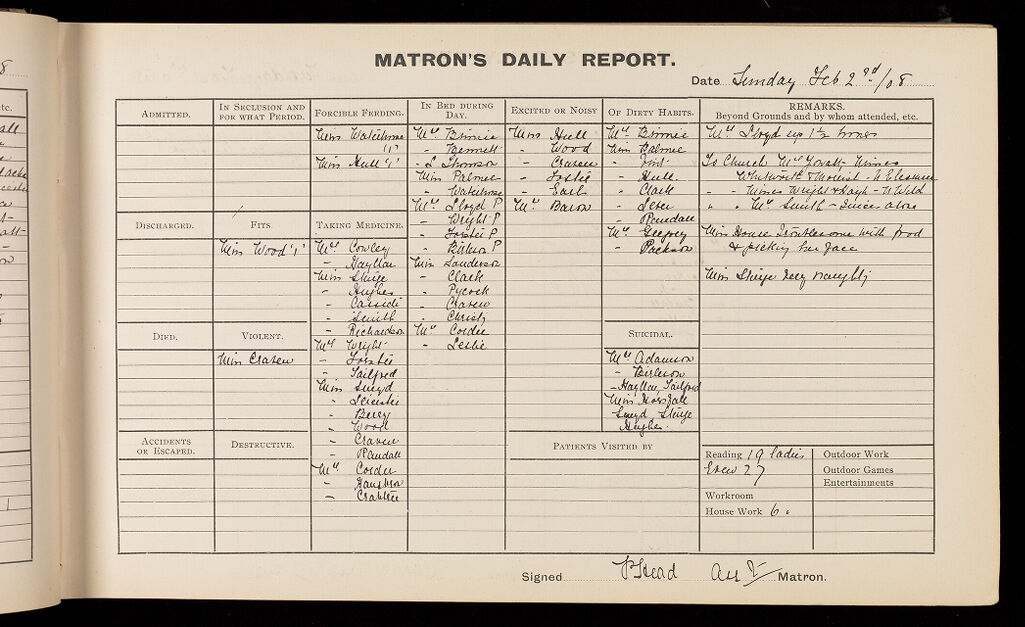 MATRON'S DAILY REPORT.
Date Sunday Feb 2nd/08
ADMITTED.
IN SECLUSION AND
FOR WHAT PERIOD.
FORCIBLE FEEDING.
Miss Waterhouse
"1"
Miss Hull "1"
IN BED DURING
DAY.
Mrs Binnie
- Bennett
- L Thomson
Miss Palmer
- Waterhouse
Mrs Lloyd P
- Wright P
- Forster P
- P
Miss Sanderson
- Clark
- Pycock
- Craven
- Christy
Mrs Corder
- Leslie
EXCITED OR NOISY
Miss Hull
- Wood
- Craven
- Forster
- Earl
Mrs Baron
OF DIRTY HABITS.
Mrs Binnie
Miss Palmer
-
- Hull
- Clark
-
- Randall
Mrs Geoffrey
- Packson
REMARKS.
Beyond Grounds and by whom attended, etc.
Mrs Lloyd up 1½ hours
To Church Mrs Misses
Whitworth &
- - Misses Wright & - N Wild
" " Mrs Smith - alone
Miss House Troublesome with food
& picking her face
Miss Sturge very naughty
DISCHARGED.
FITS.
Miss Wood "1"
TAKING MEDICINE.
Mrs Cowley
- Hayllar
Miss Sturge
- Hughes
- Cassidi
- Smith
- Richardson
Mrs Wright
- Forster
- Tailfred
Miss Sneyd
- Leicester
- Berry
- Wood
- Craven
- Randall
Mrs Corder
-
- Crabtree
DIED.
VIOLENT.
Miss Craven
SUICIDAL.
Mrs Adamson
-
- Hayllar, Tailfred
Miss Horsfall
Sneyd Sturge
Hughes
ACCIDENTS
OR ESCAPED.
DESTRUCTIVE.
PATIENTS VISITED BY
Reading 19 ladies
27
Workroom
House Work 6.
Outdoor Work
Outdoor Games
Entertainments
Signed P Head Asst Matron.